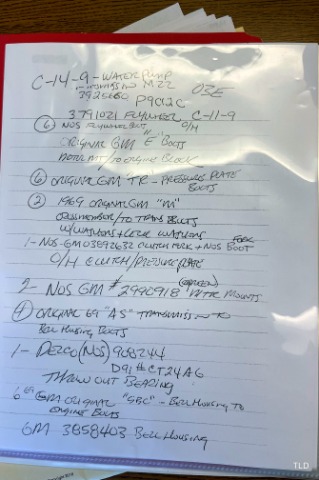 C-14-9 - WATER PUMP
TRANSMISSION M22 O3E
3925650 P9C12C
3791021 FLYWHEEL C-11-9
(6) NOS FLYWHEEL BOLT O/H
ORIGINAL GM "E" BOLTS
MOTOR MT/TO ENGINE BLOCK
(6) ORIGINAL GM TR - PRESSURE PLATE
BOLTS
(2) 1969 ORIGINAL GM "M"
/TO TRANS BOLTS
W/WASHERS + LOCK WASHERS
1 - NOS-GM 03892632 CLUTCH FORK + NOS FORK BOOT
O/H CLUTCH/PRESSURE PLATE
2 - NOS GM # 2990918 (GREEN) MTR MOUNTS
(4) ORIGINAL 69 "AS" TRANSMISSION TO
BELL HOUSING BOLTS
1 - DELCO (NOS) 908244
D91 CT24AG
THROW OUT BEARING
6 GM ORIGINAL "SBC" - BELL HOUSING TO
ENGINE BOLTS
GM 3858403 BELL HOUSING
TLD